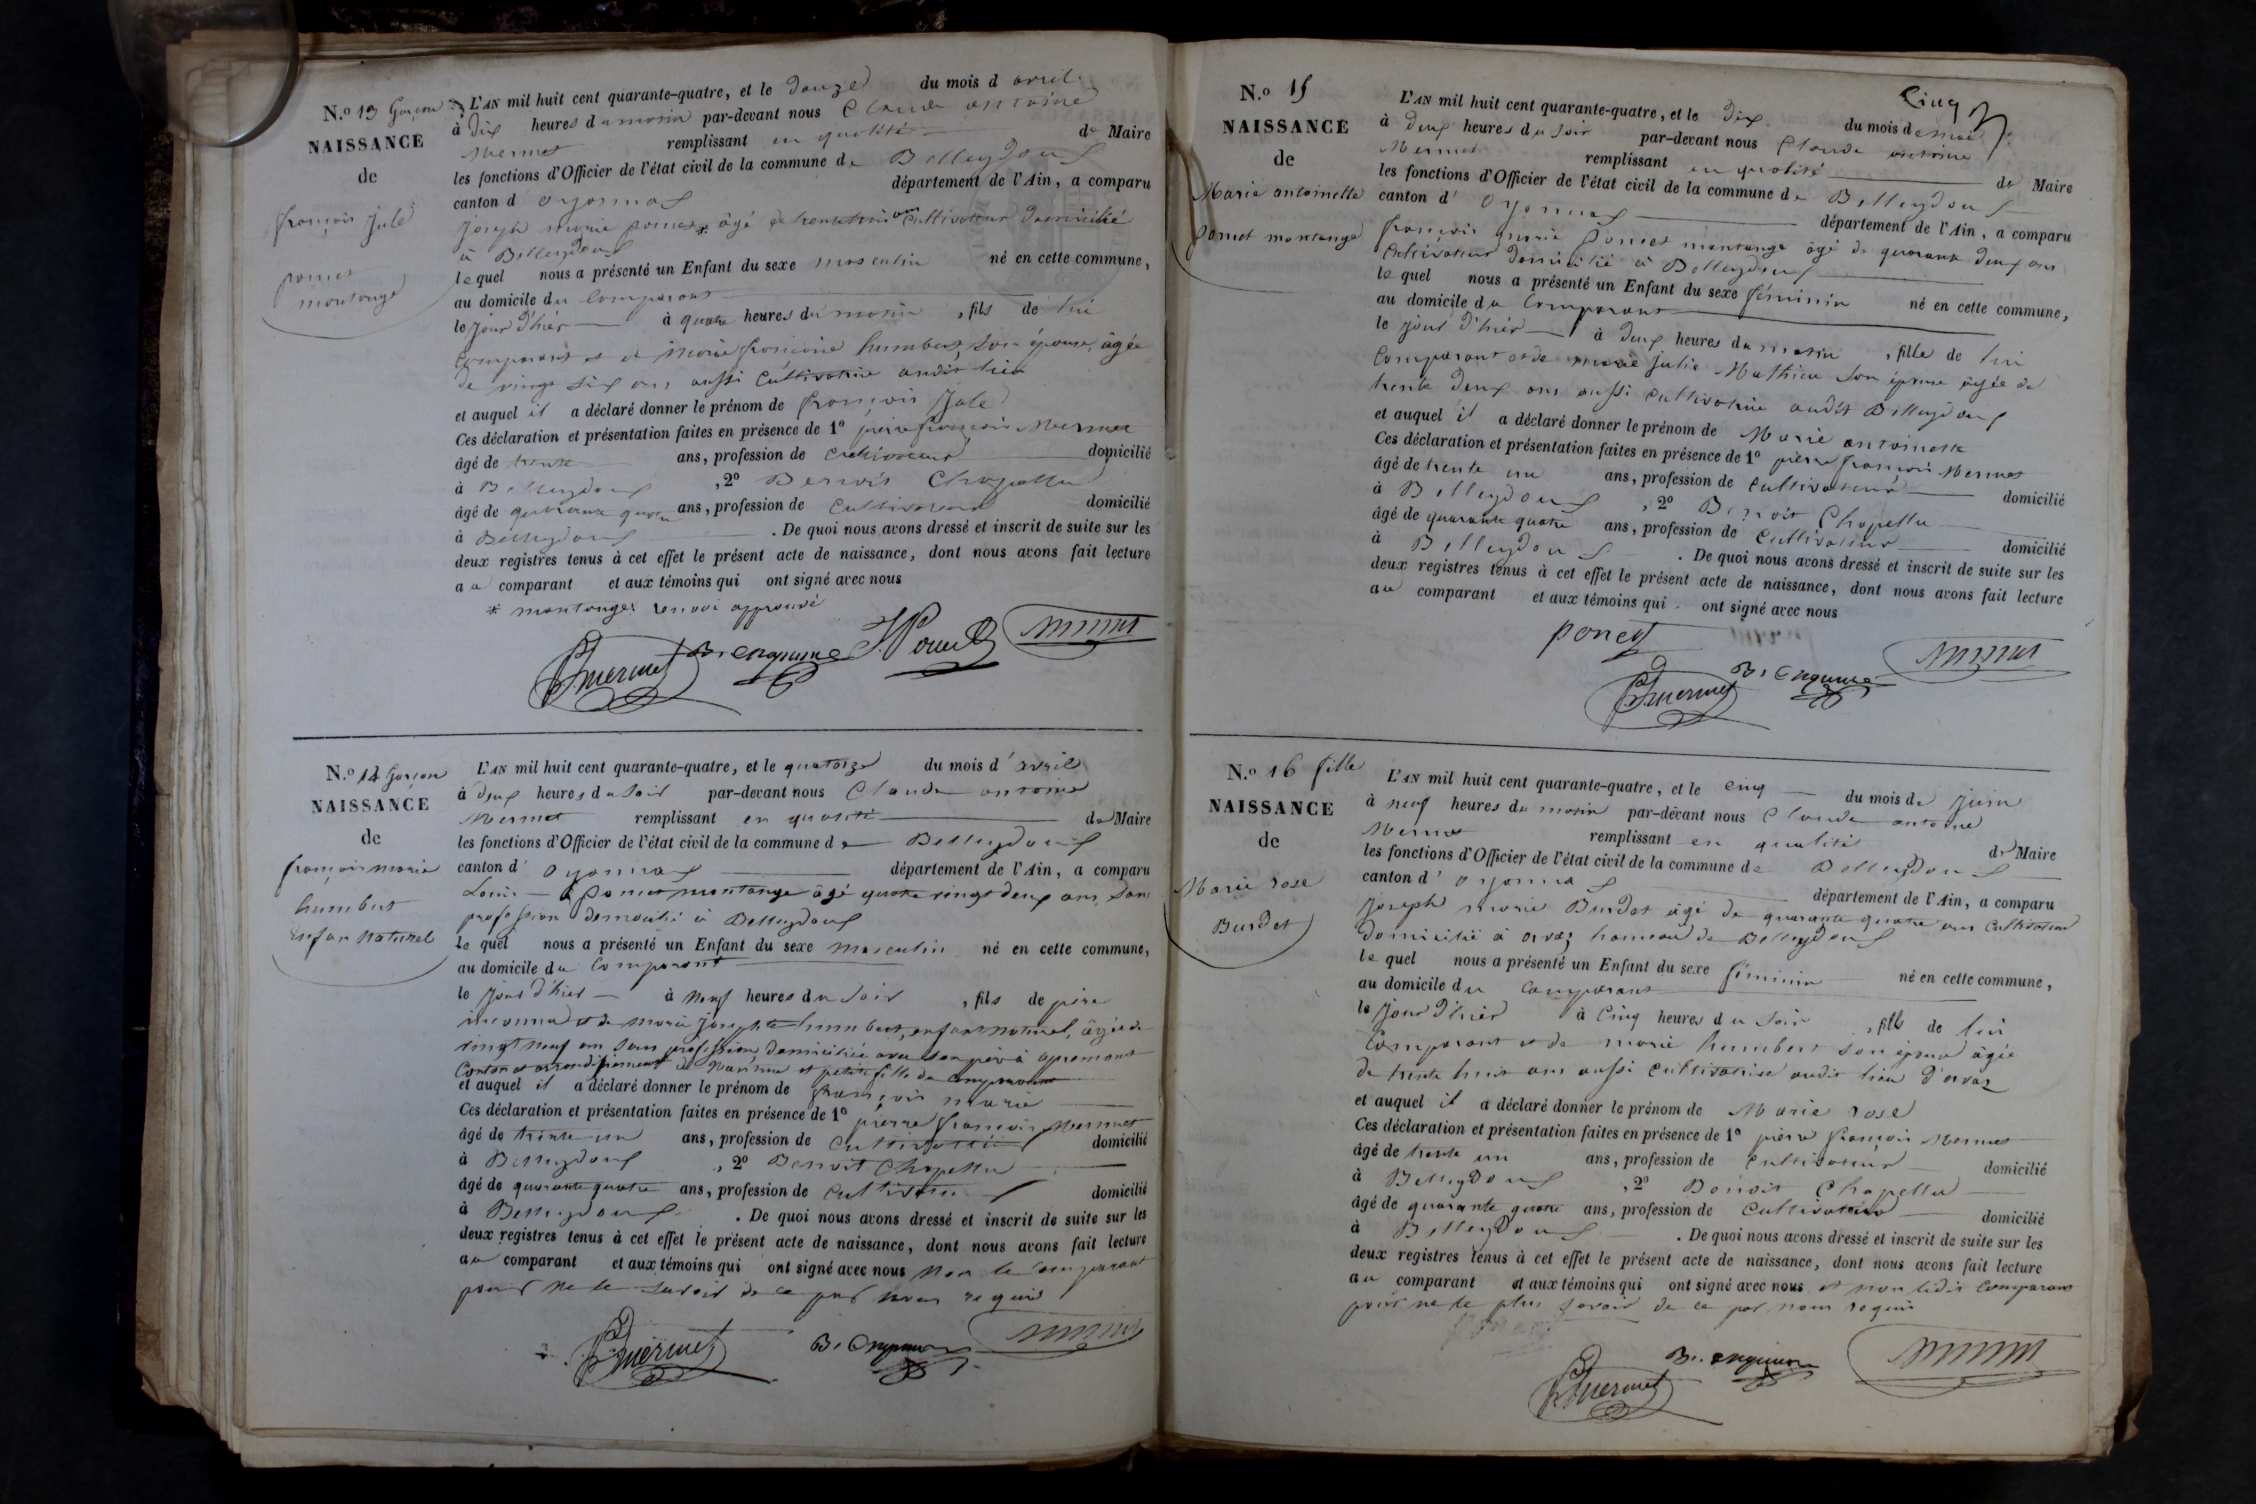 N.o 13 Garçon
NAISSANCE
de
françois Jule
poncet
montange
L'AN mil huit cent quarante-quatre, et le douze du mois d avril
à dix heures du matin par-devant nous Claude antoine
Mermet remplissant en qualité de Maire
les fonctions d'Officier de l'état civil de la commune de Belleydoux
canton d oyonnax département de l'Ain, a comparu
joseph marie poncet * âgé de trente trois ans Cultivateur domicilié
à Belleydoux
lequel nous a présenté un Enfant du sexe masculin né en cette commune,
au domicile du Comparant
le jour d'hier à quatre heures du matin, fils de lui
Comparant et de marie françoise humbert, son épouse, âgée
de vingt six ans aussi Cultivatrice audit lieu
et auquel il a déclaré donner le prénom de françois Jule
Ces déclaration et présentation faites en présence de 1o pierre françois Mermet
âgé de trente ans, profession de Cultivateur domicilié
à Belleydoux, 2o Benoit Chapellu
âgé de quarante quatre ans, profession de Cultivateur domicilié
à Belleydoux. De quoi nous avons dressé et inscrit de suite sur les
deux registres tenus à cet effet le présent acte de naissance, dont nous avons fait lecture
au comparant et aux témoins qui ont signé avec nous
* montange renvoi approuvé
Mermet
N.o 14 Garçon
NAISSANCE
de
françois marie
humbert
Enfan Naturel
L'AN mil huit cent quarante-quatre, et le quatorze du mois d'avril
à deux heures du Soir par-devant nous Claude antoine
Mermet remplissant en qualité de Maire
les fonctions d'Officier de l'état civil de la commune de Belleydoux
canton d' oyonnax département de l'Ain, a comparu
Louis poncet montange âgé quatre vingt deux ans, San
profession domicilié à Belleydoux
lequel nous a présenté un Enfant du sexe masculin né en cette commune,
au domicile du Comparant
le jour d'hier à Neuf heures du Soir, fils de père
inconnu et de marie josephte humbert, enfant naturel, âgée de
vingt neuf ans Sans profession, domiciliée avec son père à apremont
Canton et arrondissement de Nantua et petite fille du comparant
et auquel il a déclaré donner le prénom de françois marie
Ces déclaration et présentation faites en présence de 1o pierre françois Mermet
âgé de trente un ans, profession de Cultivateur domicilié
à Belleydoux, 2o Benoit Chapellu
âgé de quarante quatre ans, profession de Cultivateur domicilié
à Belleydoux. De quoi nous avons dressé et inscrit de suite sur les
deux registres tenus à cet effet le présent acte de naissance, dont nous avons fait lecture
au comparant et aux témoins qui ont signé avec nous Non le Comparant
pour ne le Savoir de ce par nous requis
Mermet
Cinq
N.o 15
NAISSANCE
de
Marie antoinette
poncet montange
L'AN mil huit cent quarante-quatre, et le dix du mois de mai
à deux heures du soir par-devant nous Claude antoine
Mermet remplissant en qualité de Maire
les fonctions d'Officier de l'état civil de la commune de Belleydoux
canton d' oyonnax département de l'Ain, a comparu
françois marie poncet montange âgé de quarante deux ans
Cultivateur domicilié à Belleydoux
lequel nous a présenté un Enfant du sexe féminin né en cette commune,
au domicile du Comparant
le jour d'hier à deux heures du matin, fille de lui
Comparant et de marie Julie Mathieu Son épouse âgée de
trente deux ans aussi Cultivatrice audit Belleydoux
et auquel il a déclaré donner le prénom de Marie antoinette
Ces déclaration et présentation faites en présence de 1o pierre françois Mermet
âgé de trente un ans, profession de Cultivateur domicilié
à Belleydoux, 2o Benoit Chapellu
âgé de quarante quatre ans, profession de Cultivateur domicilié
à Belleydoux. De quoi nous avons dressé et inscrit de suite sur les
deux registres tenus à cet effet le présent acte de naissance, dont nous avons fait lecture
au comparant et aux témoins qui ont signé avec nous
poncet
Mermet
N.o 16 fille
NAISSANCE
de
Marie rose
Burdet
L'AN mil huit cent quarante-quatre, et le cinq du mois de juin
à neuf heures du matin par-devant nous Claude antoine
Mermet remplissant en qualité de Maire
les fonctions d'Officier de l'état civil de la commune de Belleydoux
canton d' oyonnax département de l'Ain, a comparu
joseph marie Burdet âgé de quarante quatre ans Cultivateur
domicilié à orvaz hameau de Belleydoux
lequel nous a présenté un Enfant du sexe féminin né en cette commune,
au domicile du Comparant
le jour d'hier à Cinq heures du Soir, fille de lui
Comparant et de marie humbert son épouse âgée
de trente huit ans aussi Cultivatrice audit lieu d'orvaz
et auquel il a déclaré donner le prénom de Marie rose
Ces déclaration et présentation faites en présence de 1o pierre françois Mermet
âgé de trente un ans, profession de Cultivateur domicilié
à Belleydoux, 2o Benoit Chapellu
âgé de quarante quatre ans, profession de Cultivateur domicilié
à Belleydoux. De quoi nous avons dressé et inscrit de suite sur les
deux registres tenus à cet effet le présent acte de naissance, dont nous avons fait lecture
au comparant et aux témoins qui ont signé avec nous et non ledit Comparant
pour ne le plus Savoir de ce par nous requis
Mermet